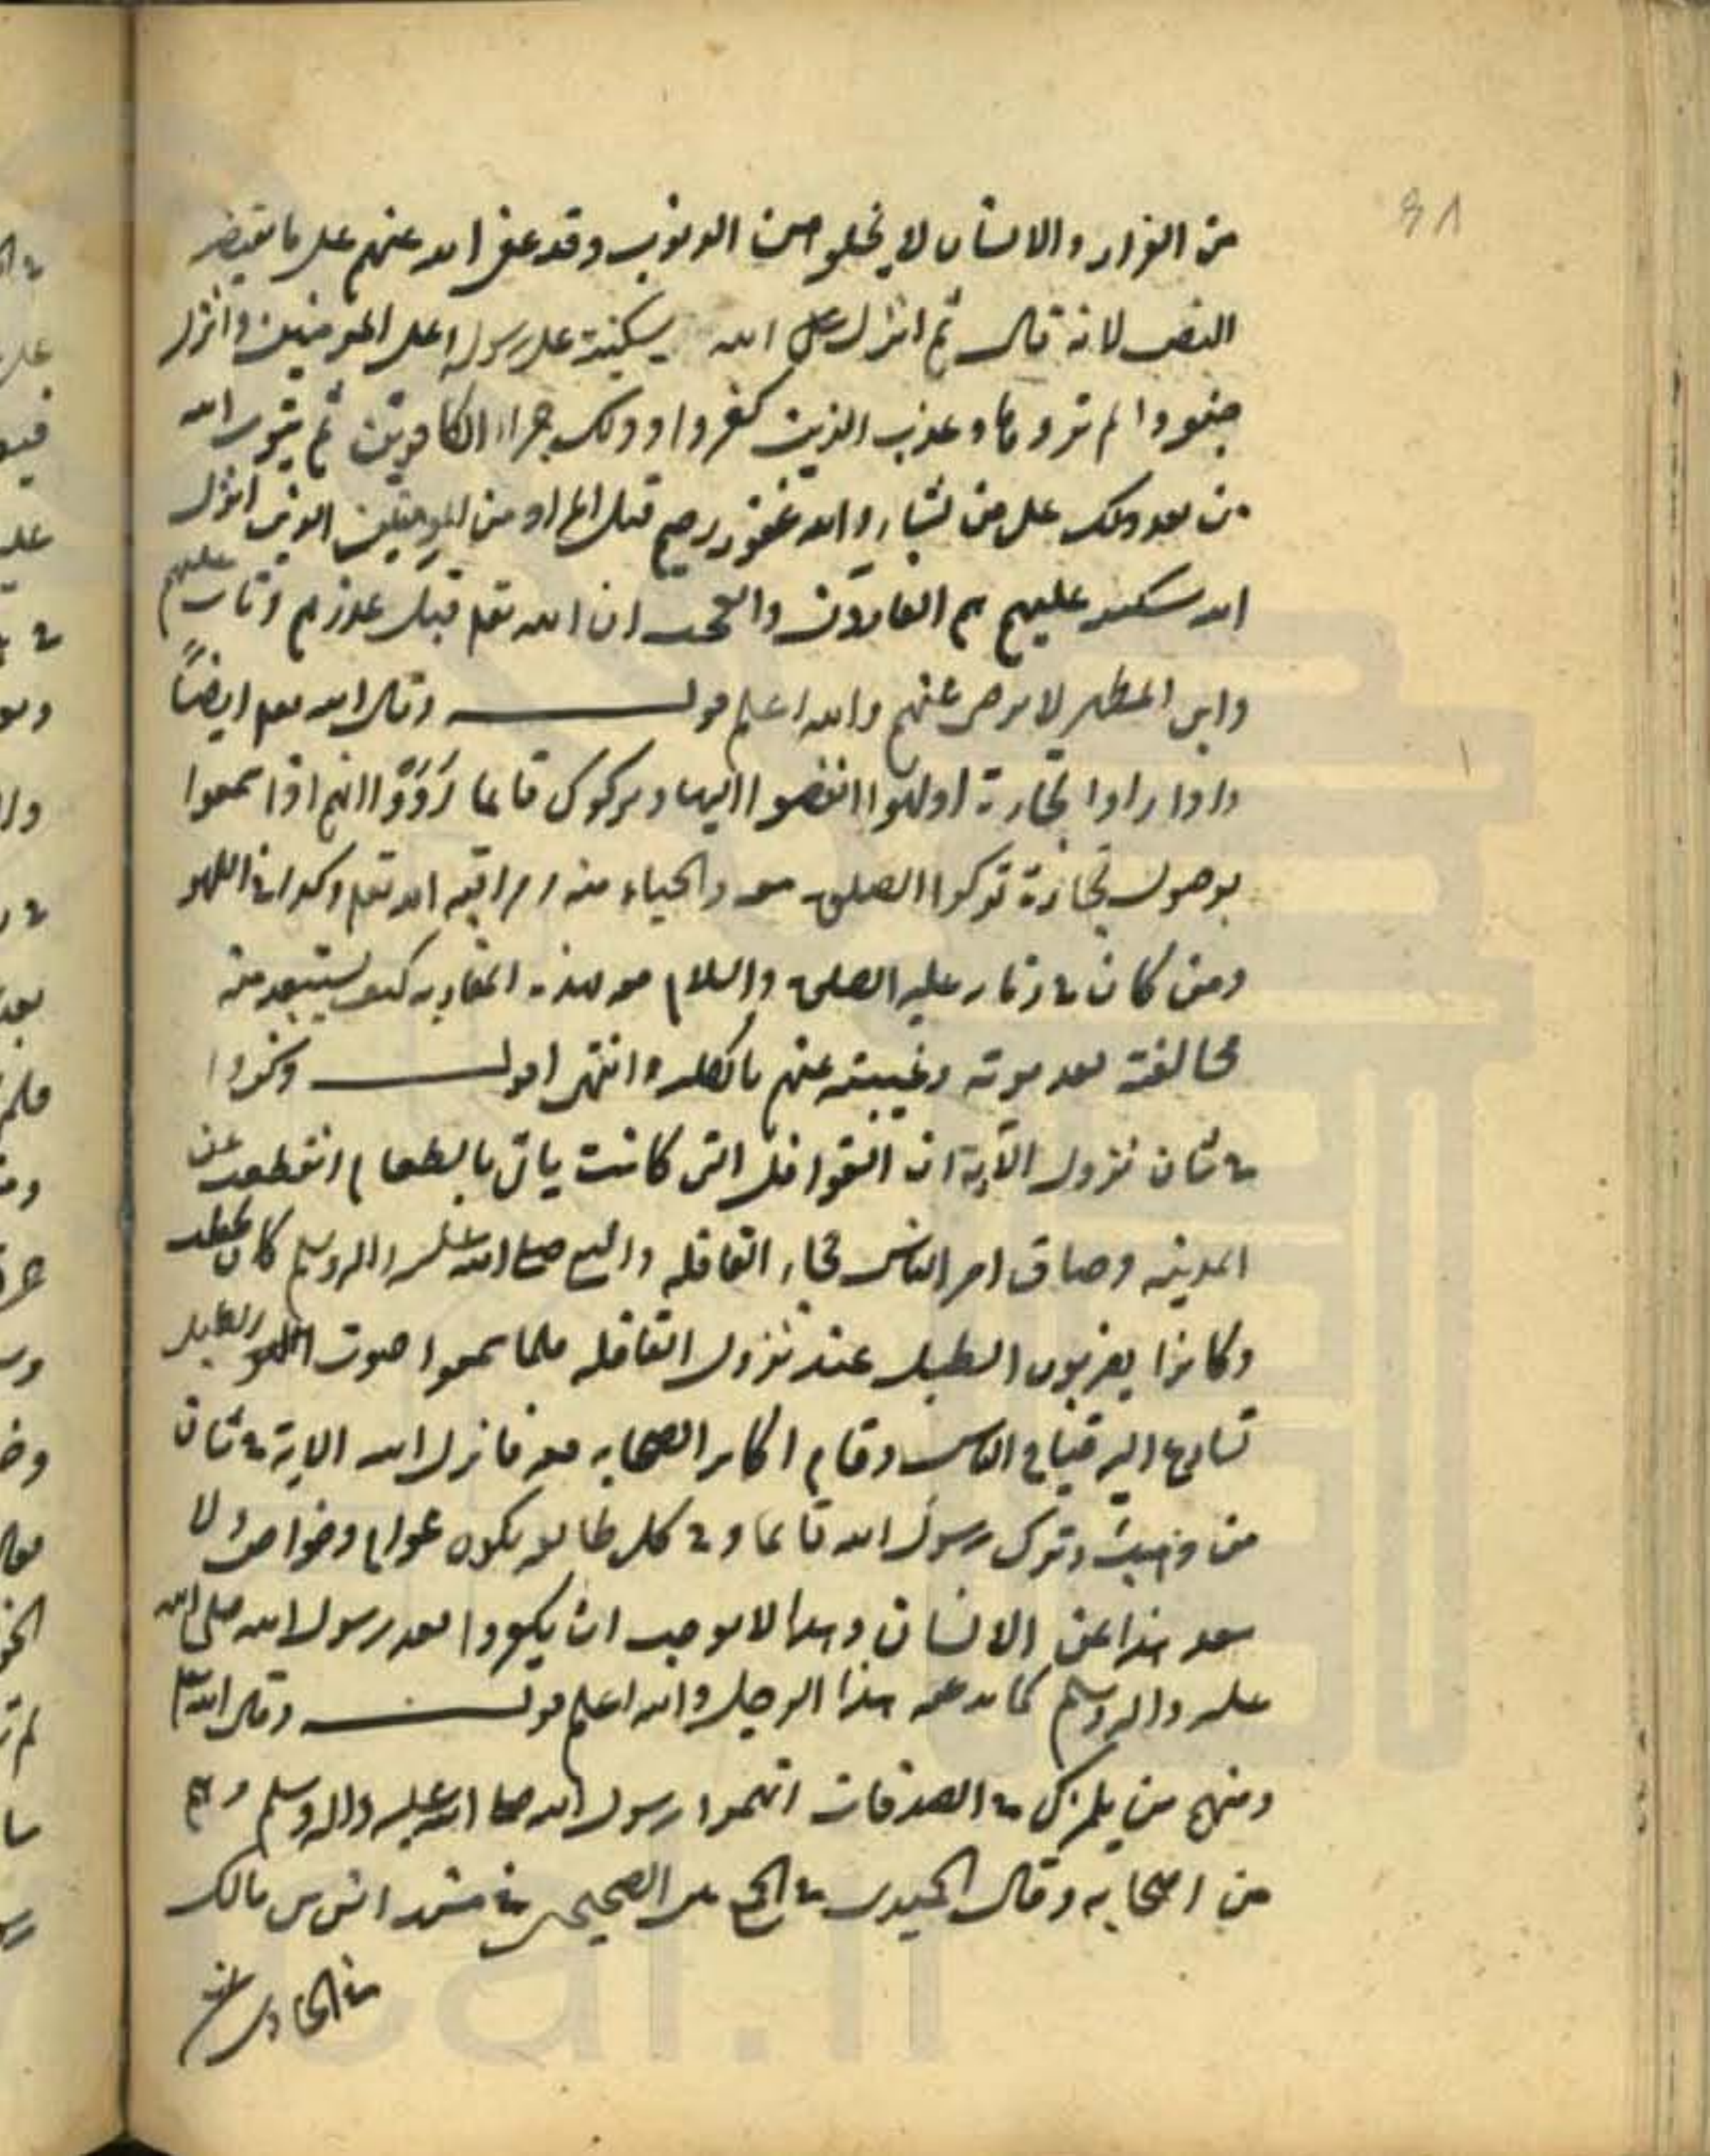 ٨١
من الفرار والانسان لا يخلو من الذنوب وقد عفى الله عنهم على ما يقتضيه
النص لانه قال ثم انزل الله سكينته على رسوله وعلى المؤمنين وانزل
جنودا لم تروها وعذب الذين كفروا وذلك جزاء الكافرين ثم يتوب الله
من بعد ذلك على من يشاء والله غفور رحيم قيل المراد من المؤمنين الذين انزل
الله سكينته عليهم هم الفارون والحمد ان الله تعالى قبل عذرهم وتاب عليهم
وابن المطهر لا يرضى عنهم والله اعلم قوله وقال الله تعالى ايضاً
واذا راوا تجارة او لهوا انفضوا اليها وتركوك قائما رووا انهم اذا سمعوا
بوصول تجارة تركوا الصلوة معه والحياء منه ومراقبة الله تعالى وكذا في اللهو
ومن كان في زمانه عليه الصلوة والسلام معه بهذه المثابة كيف يستبعد منه
مخالفته بعد موته وغيبته عنهم بالكلية انتهى اقول ذكروا
في شان نزول الآية ان القوافل التى كانت ياتى بالطعام انقطعت عن
المدينة وضاق امر الناس فجاء القافلة والنبي صلى الله عليه واله وسلم كان يخطب
وكانوا يضربون الطبل عند نزول القافلة فلما سمعوا صوت اللهو والطبل
تسارع اليه الناس وقام اكابر الصحابة معه فانزل الله الاية في شان
من ذهب وترك رسول الله قائما وفي كل طائفة يكون عوام وخواص ولا
يبعد هذا عن الانسان وهذا لا يوجب ان يكفروا بعد رسول الله صلى الله
عليه واله وسلم كما يدعيه هذا الرجل والله اعلم قوله وقال الله تعالى
ومنهم من يلمزك في الصدقات اتهموا رسول الله صلى الله عليه واله وسلم وهم
من اصحابه وقال الحميدي في الجمع بين الصحيحين في مسند انس بن مالك
في الحادي